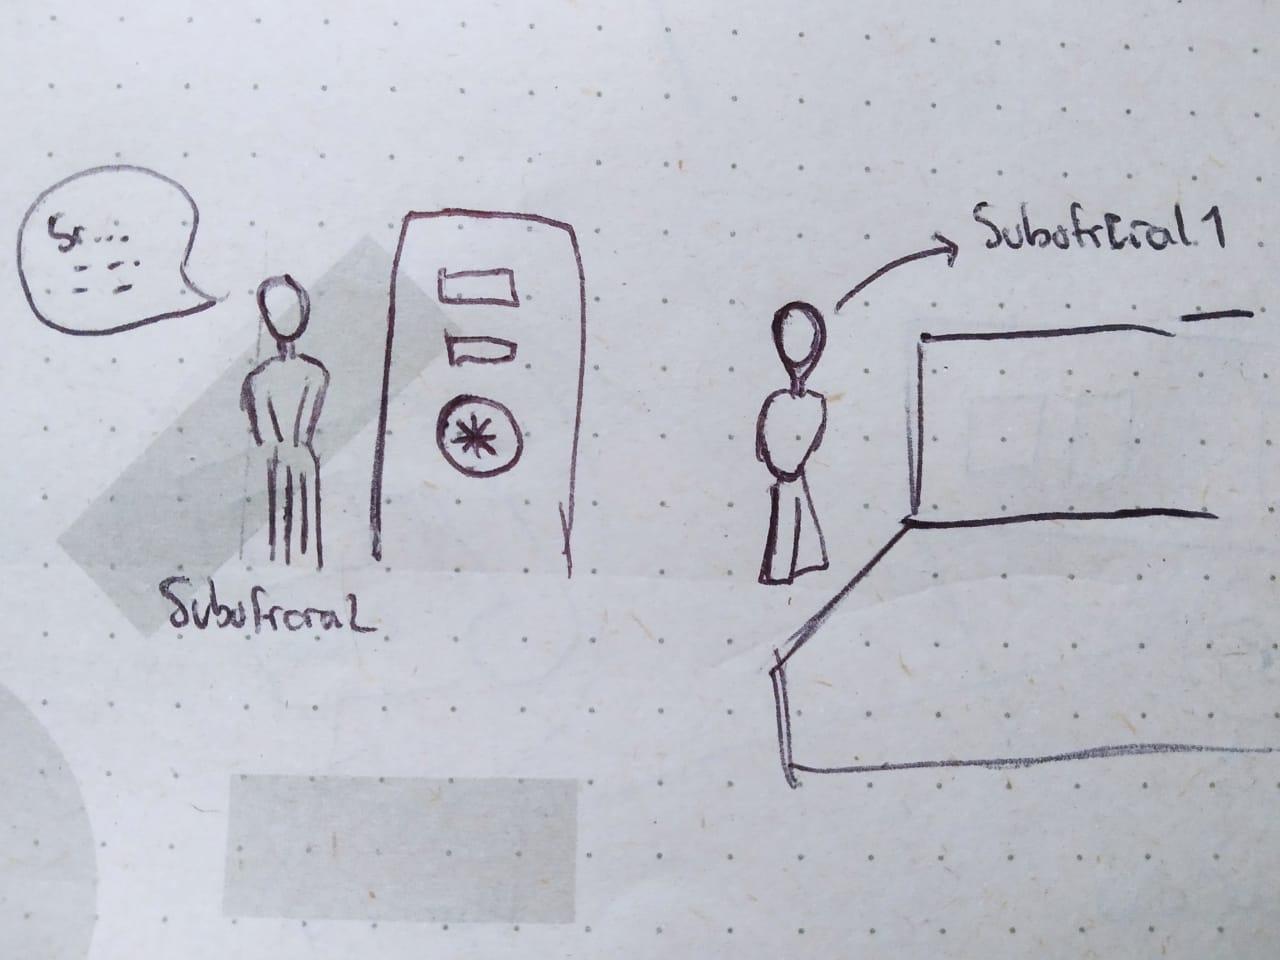 Sr...
Suboficial 1
Suboficial 2